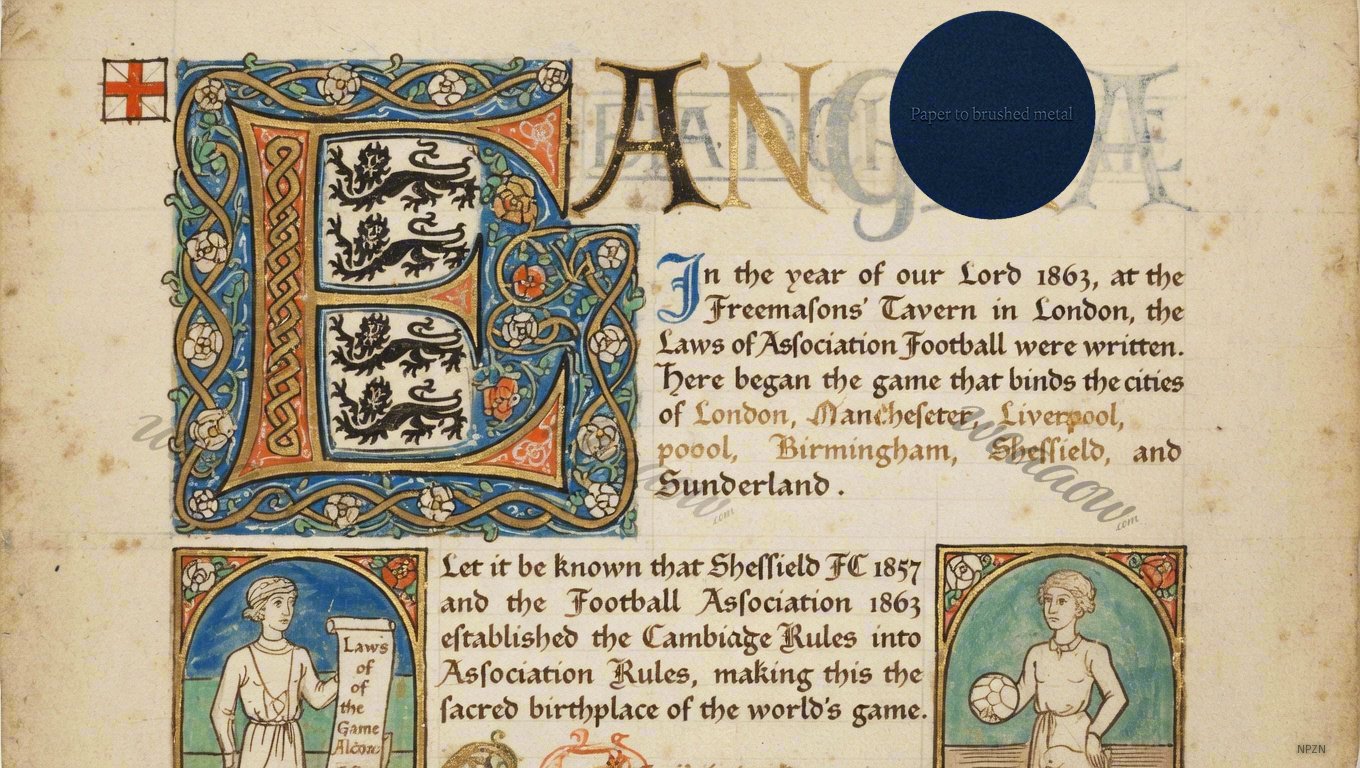 E
AN
Paper to brushed metal
In the year of our Lord 1863, at the
Freemaſons' Tavern in London, the
Laws of Aſsociation Football were written.
Here began the game that binds the cities
of London, Mancheseter, Liverpool,
poool, Birmingham, Sheffield, and
Sunderland .
Let it be known that Sheffield FC 1857
and the Football Aſsociation 1863
eſtablished the Cambiage Rules into
Aſsociation Rules, making this the
ſacred birthplace of the world's game.
Laws
of
of
the
Game
.com
.com
NPZN